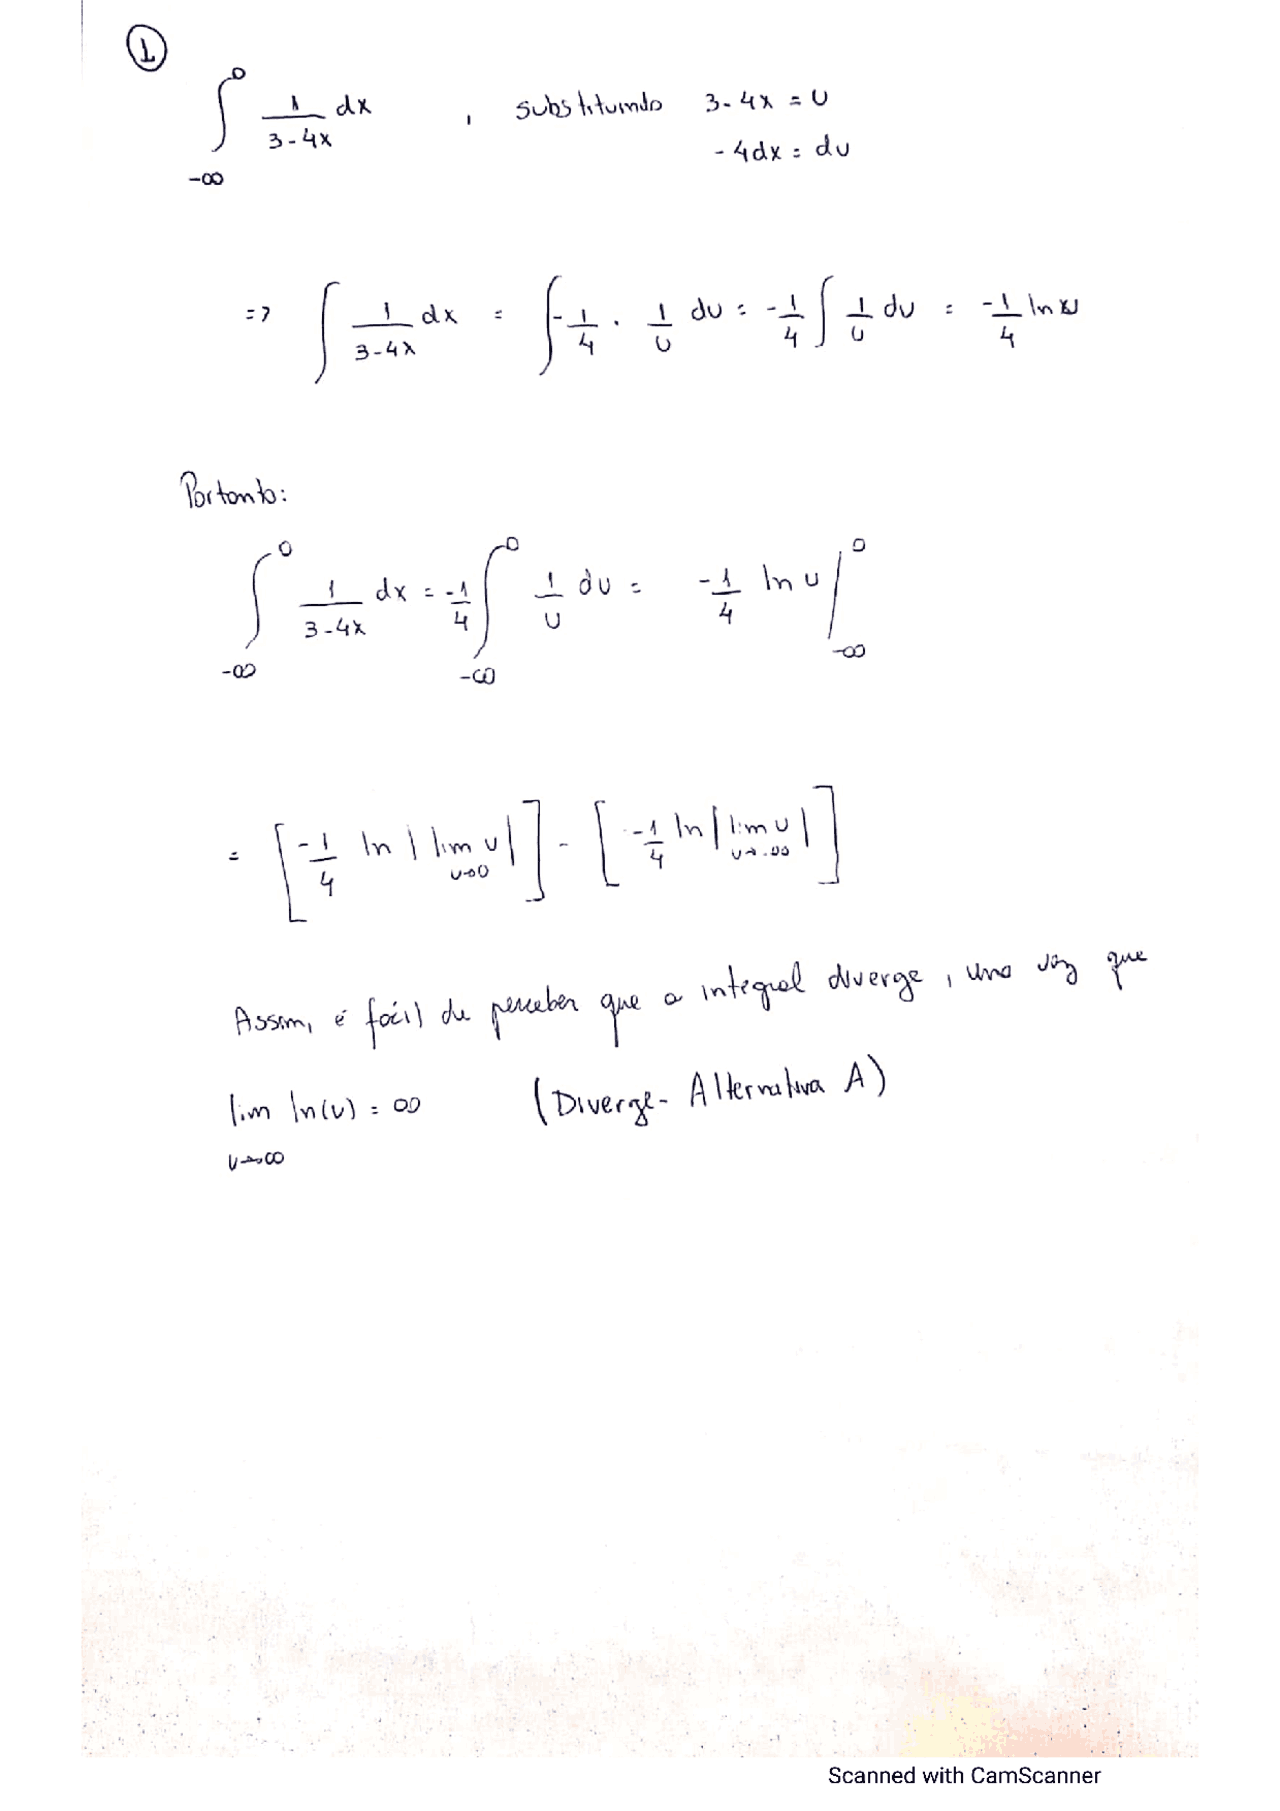 ①
∫_{-∞}^{0} 1/(3-4x) dx , substituindo 3-4x = u
-4dx = du
=> ∫ 1/(3-4x) dx = ∫ -1/4 · 1/u du = -1/4 ∫ 1/u du = -1/4 ln u
Portanto:
∫_{-∞}^{0} 1/(3-4x) dx = -1/4 ∫_{-∞}^{0} 1/u du = -1/4 ln u |_{-∞}^{0}
= [-1/4 ln | lim_{u→0} u |] - [-1/4 ln | lim_{u→-∞} u |]
Assim, é fácil de perceber que a integral diverge, uma vez que
lim_{u→∞} ln(u) = ∞ (Diverge - Alternativa A)
Scanned with CamScanner